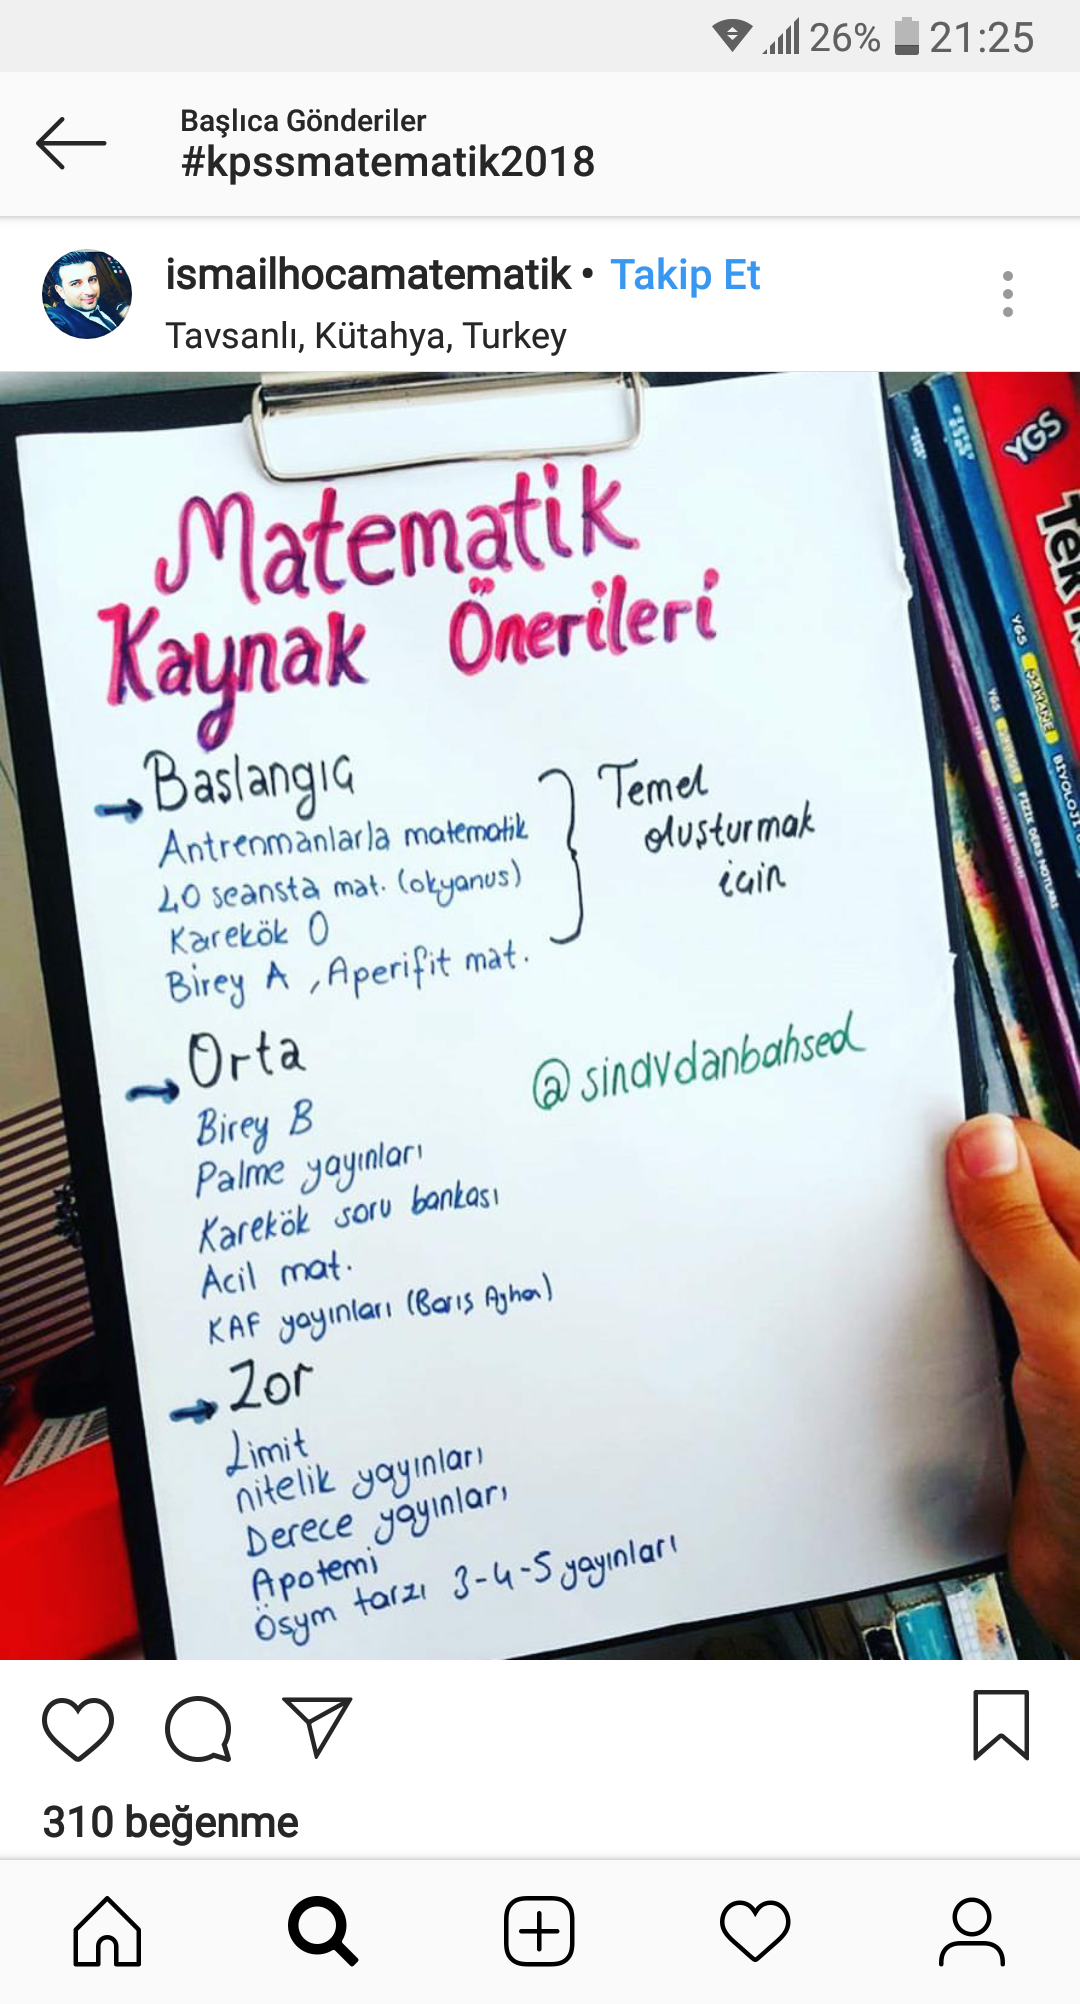 26% 21:25
Başlıca Gönderiler
#kpssmatematik2018
ismailhocamatematik • Takip Et
Tavsanlı, Kütahya, Turkey
Matematik
Kaynak Önerileri
Baslangıç
Antrenmanlarla matematik
40 seansta mat. (okyanus)
Karekök 0
Birey A , Aperifit mat.
Temel
oluşturmak
için
Orta
@sinavdanbahsed
Birey B
Palme yayınları
Karekök soru bankası
Acil mat.
KAF yayınları (Barış Ayhan)
Zor
Limit
nitelik yayınları
Derece yayınları
Apotemi
Ösym tarzı 3-4-5 yayınları
YGS
Tek
YGS ŞAHANE BİYOLOJİ
YGS FİZİK DERS NOTLARI
310 beğenme